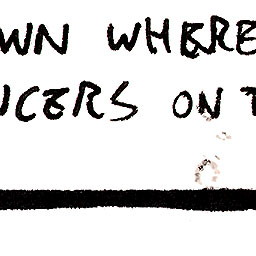 WN WHERE
NCERS ON T